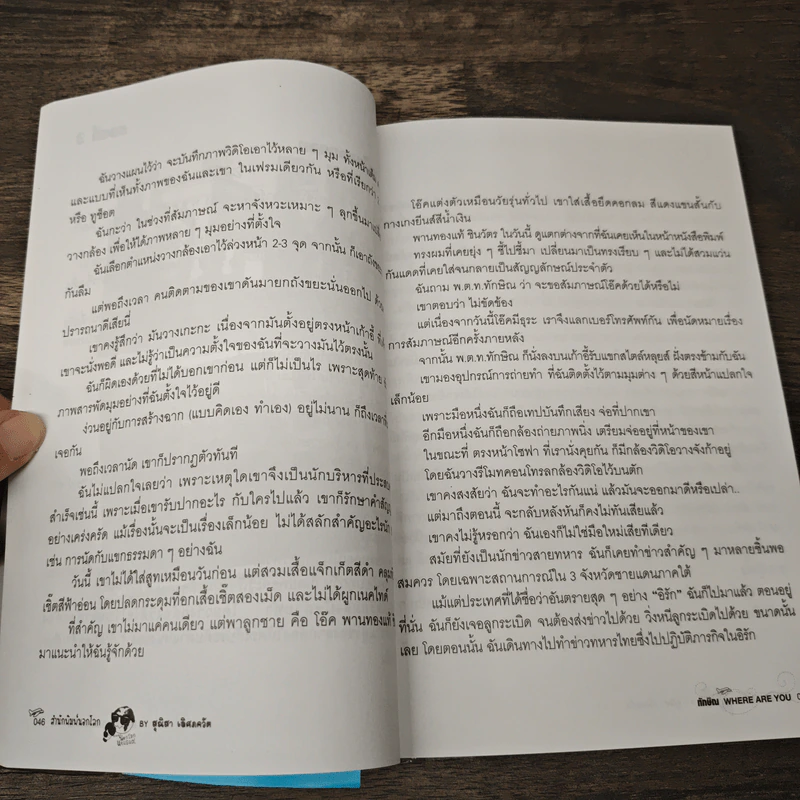 ฉันวางแผนไว้ว่า จะบันทึกภาพวิดีโอเอาไว้หลาย ๆ มุม ทั้งหน้าเดี่ยว
และแบบที่เห็นทั้งภาพของฉันและเขา ในเฟรมเดียวกัน หรือที่เรียกว่า
หรือ ทูช็อต
ฉันกะว่า ในช่วงที่สัมภาษณ์ จะหาจังหวะเหมาะ ๆ ลุกขึ้นมา
วางกล้อง เพื่อให้ได้ภาพหลาย ๆ มุมอย่างที่ตั้งใจ
ฉันเลือกตำแหน่งวางกล้องเอาไว้ล่วงหน้า 2-3 จุด จากนั้น ก็เอาถังขยะ
กันลืม
แต่พอถึงเวลา คนติดตามของเขาดันมายกถังขยะนั่นออกไป ด้วย
ปรารถนาดีเสียนี่
เขาคงรู้สึกว่า มันวางเกะกะ เนื่องจากมันตั้งอยู่ตรงหน้าเก้าอี้ ที่
เขาจะนั่งพอดี และไม่รู้ว่าเป็นความตั้งใจของฉันที่จะวางมันไว้ตรงนั้น
ฉันก็ผิดเองด้วยที่ไม่ได้บอกเขาก่อน แต่ก็ไม่เป็นไร เพราะสุดท้าย
ภาพสารพัดมุมอย่างที่ฉันตั้งใจไว้อยู่ดี
ง่วนอยู่กับการสร้างฉาก (แบบคิดเอง ทำเอง) อยู่ไม่นาน ก็ถึงเวลา
เจอกัน
พอถึงเวลานัด เขาก็ปรากฏตัวทันที
ฉันไม่แปลกใจเลยว่า เพราะเหตุใดเขาจึงเป็นนักบริหารที่ประสบ
สำเร็จเช่นนี้ เพราะเมื่อเขารับปากอะไร กับใครไปแล้ว เขาก็รักษาคำสัญ
อย่างเคร่งครัด แม้เรื่องนั้นจะเป็นเรื่องเล็กน้อย ไม่ได้สลักสำคัญอะไรนัก
เช่น การนัดกับแขกธรรมดา ๆ อย่างฉัน
วันนี้ เขาไม่ได้ใส่สูทเหมือนวันก่อน แต่สวมเสื้อแจ็กเก็ตสีดำ คลุม
เชิ้ตสีฟ้าอ่อน โดยปลดกระดุมที่อกเสื้อเชิ้ตสองเม็ด และไม่ได้ผูกเนคไทด์
ที่สำคัญ เขาไม่มาแค่คนเดียว แต่พาลูกชาย คือ โอ๊ค พานทองแท้
มาแนะนำให้ฉันรู้จักด้วย
046 สำนักพิมพ์นอกโลก BY สุณิสา เลิศภควัต
โอ๊คแต่งตัวเหมือนวัยรุ่นทั่วไป เขาใส่เสื้อยืดคอกลม สีแดงแขนสั้นกับ
กางเกงยีนส์สีน้ำเงิน
พานทองแท้ ชินวัตร ในวันนี้ ดูแตกต่างจากที่ฉันเคยเห็นในหน้าหนังสือพิมพ์
ทรงผมที่เคยยุ่ง ๆ ชี้ไปชี้มา เปลี่ยนมาเป็นทรงเรียบ ๆ และไม่ได้สวมแว่น
กันแดดที่เคยใส่จนกลายเป็นสัญญลักษณ์ประจำตัว
ฉันถาม พ.ต.ท.ทักษิณ ว่า จะขอสัมภาษณ์โอ๊คด้วยได้หรือไม่
เขาตอบว่า ไม่ขัดข้อง
แต่เนื่องจากวันนี้โอ๊คมีธุระ เราจึงแลกเบอร์โทรศัพท์กัน เพื่อนัดหมายเรื่อง
การสัมภาษณ์อีกครั้งภายหลัง
จากนั้น พ.ต.ท.ทักษิณ ก็นั่งลงบนเก้าอี้รับแขกสไตล์หลุยส์ ฝั่งตรงข้ามกับฉัน
เขามองอุปกรณ์การถ่ายทำ ที่ฉันติดตั้งไว้ตามมุมต่าง ๆ ด้วยสีหน้าแปลกใจ
เล็กน้อย
เพราะมือหนึ่งฉันก็ถือเทปบันทึกเสียง จ่อที่ปากเขา
อีกมือหนึ่งฉันก็ถือกล้องถ่ายภาพนิ่ง เตรียมจ่ออยู่ที่หน้าของเขา
ในขณะที่ ตรงหน้าโซฟา ที่เรานั่งคุยกัน ก็มีกล้องวิดีโอวางจังก้าอยู่
โดยฉันวางรีโมทคอนโทรลกล้องวิดีโอไว้บนตัก
เขาคงสงสัยว่า ฉันจะทำอะไรกันแน่ แล้วมันจะออกมาดีหรือเปล่า..
แต่มาถึงตอนนี้ จะกลับหลังหันก็คงไม่ทันเสียแล้ว
เขาคงไม่รู้หรอกว่า ฉันเองก็ไม่ใช่มือใหม่เสียทีเดียว
สมัยที่ยังเป็นนักข่าวสายทหาร ฉันก็เคยทำข่าวสำคัญ ๆ มาหลายชิ้นพอ
สมควร โดยเฉพาะสถานการณ์ใน 3 จังหวัดชายแดนภาคใต้
แม้แต่ประเทศที่ได้ชื่อว่าอันตรายสุด ๆ อย่าง "อิรัก" ฉันก็ไปมาแล้ว ตอนอยู่
ที่นั่น ฉันก็ยังเจอลูกระเบิด จนต้องส่งข่าวไปด้วย วิ่งหนีลูกระเบิดไปด้วย ขนาดนั้น
เลย โดยตอนนั้น ฉันเดินทางไปทำข่าวทหารไทยซึ่งไปปฏิบัติภารกิจในอิรัก
ทักษิณ WHERE ARE YOU